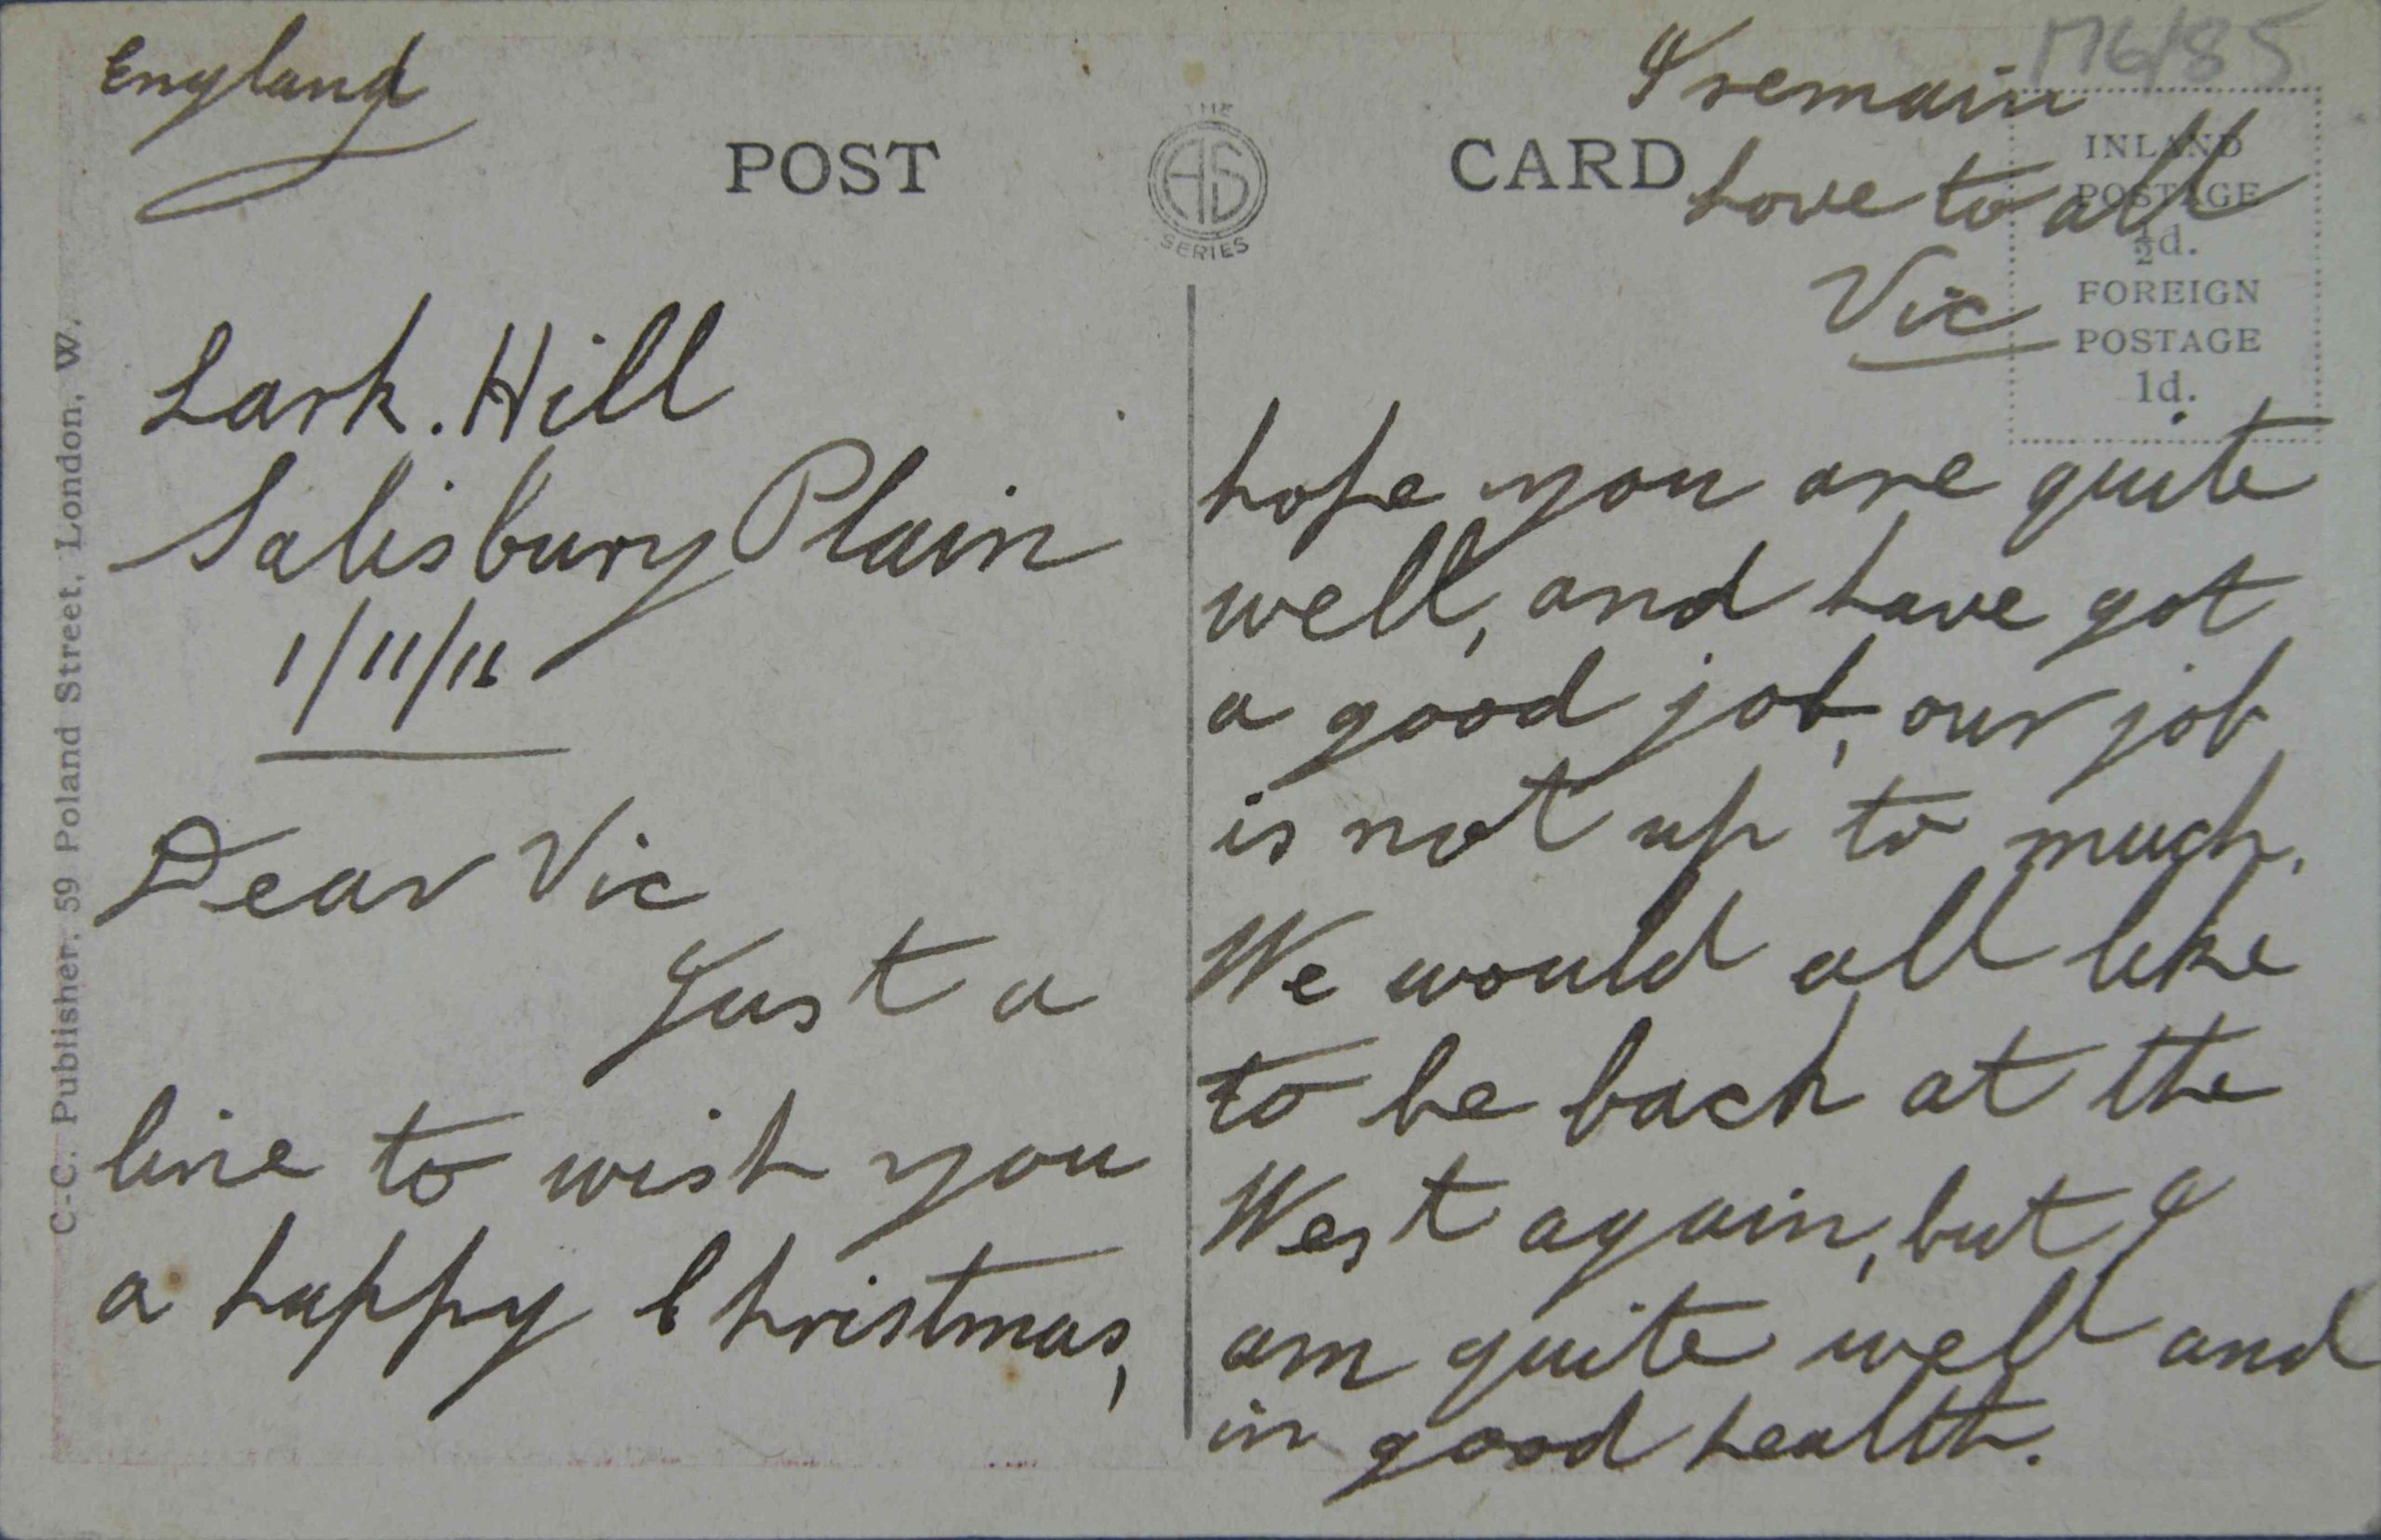 England
POST CARD
THE
AS
SERIES
Lark. Hill
Salisbury Plain
1/11/16
Dear Vic
Just a
line to wish you
a happy Christmas,
hope you are quite
well, and have got
a good job, our job
is not up to much.
We would all like
to be back at the
West again, but I
am quite well and
in good health.
I remain
Love to all
Vic
M6/85
INLAND
POSTAGE
½d.
FOREIGN
POSTAGE
1d.
C.-C. Publisher, 59 Poland Street, London, W.